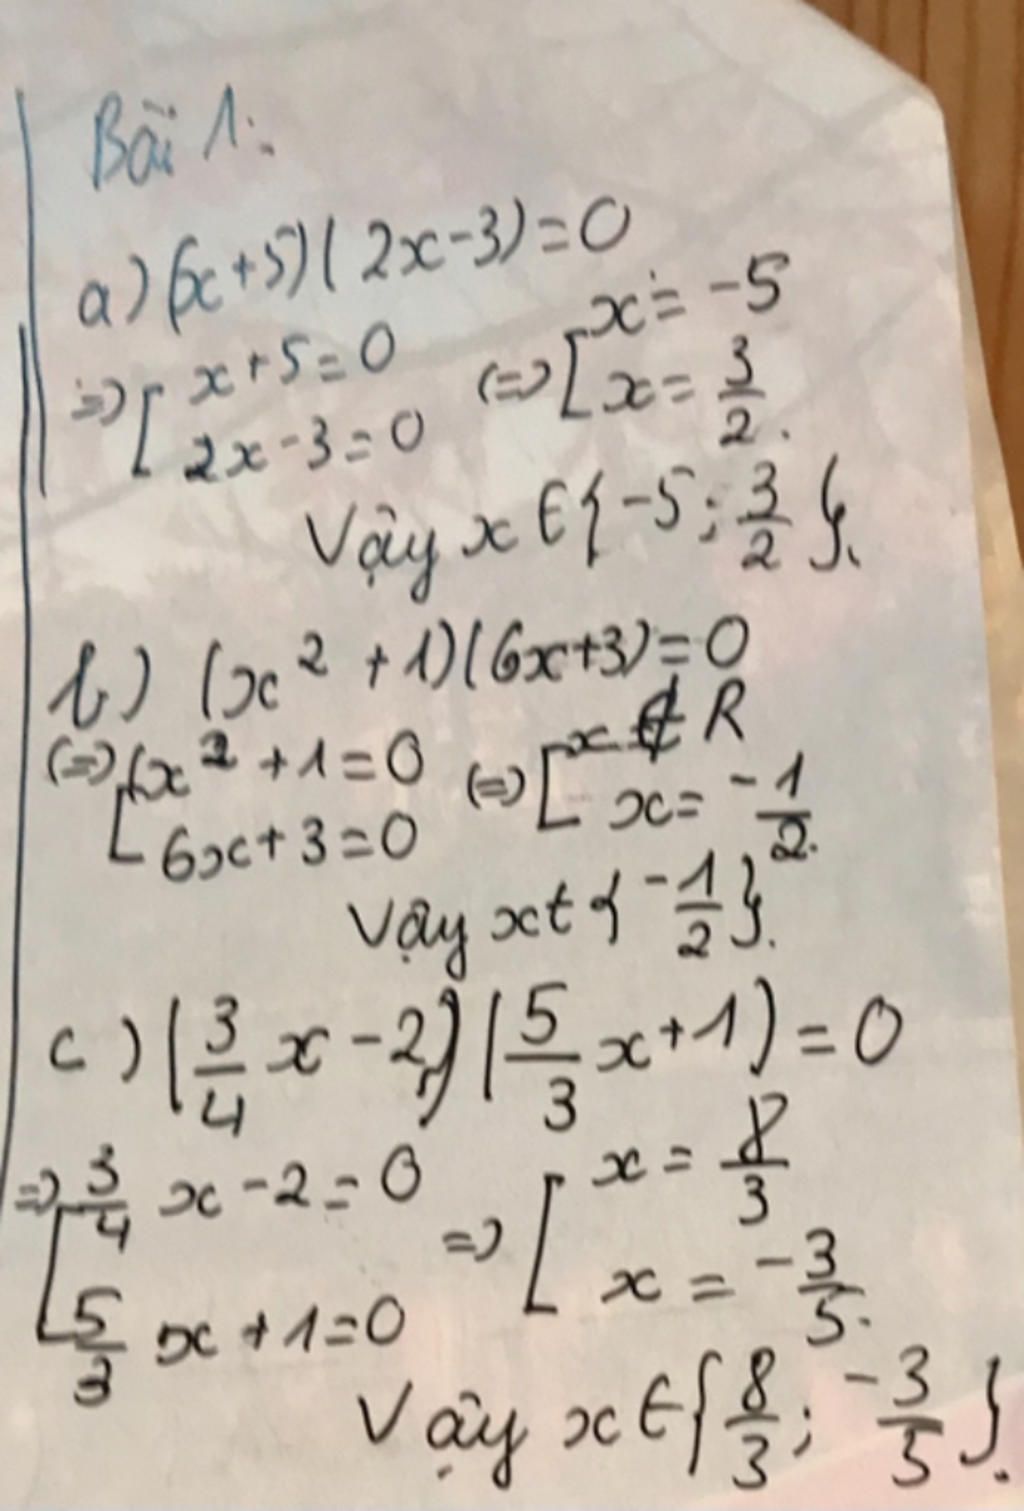 Bài 1:
a) (x+5)(2x-3)=0
=> [ x+5=0 (=> [ x = -5
2x-3=0 x = 3/2.
Vậy x ∈ { -5; 3/2 }.
b) (x² +1)(6x+3)=0
(=> [ x² +1=0 (=> [ x ∉ R
6x+3=0 x = -1/2.
Vậy x ∈ { -1/2 }.
c) (3/4 x -2)(5/3 x+1) = 0
=> [ 3/4 x -2=0 => [ x = 8/3
5/3 x +1=0 x = -3/5.
Vậy x ∈ { 8/3; -3/5 }.